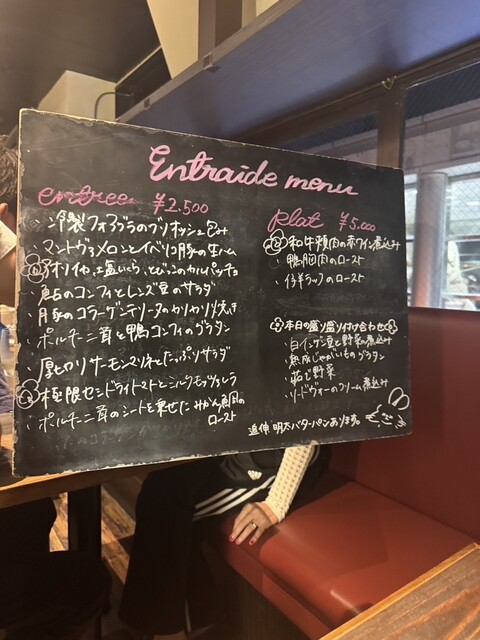 Entraide menu
entree ¥2,500
・冷製フォアグラのブリオッシュ包み
・マントヴァメロンとイベリコ豚の生ハム
・アオリイカ、塩いくら、とびっこのカルパッチョ
・鮎のコンフィとレンズ豆のサラダ
・豚のコラーゲンテリーヌのカリカリ焼き
・ポルチーニ茸と鴨コンフィのグラタン
・厚切りサーモンマリネ たっぷりサラダ
極限センドライトマトとシルクモッツァレラ
・ポルチーニ茸のシートを乗せた みかん鯛の
ロースト
plat ¥5,000
和牛頬肉の赤ワイン煮込み
・鴨胸肉のロースト
・仔羊ラックのロースト
本日の盛り盛り付け合わせ
・白インゲン豆と野菜の煮込み
・熟成じゃがいものグラタン
・茹で野菜
・リードヴォーのクリーム煮込み
追伸 明太バターパンあります。